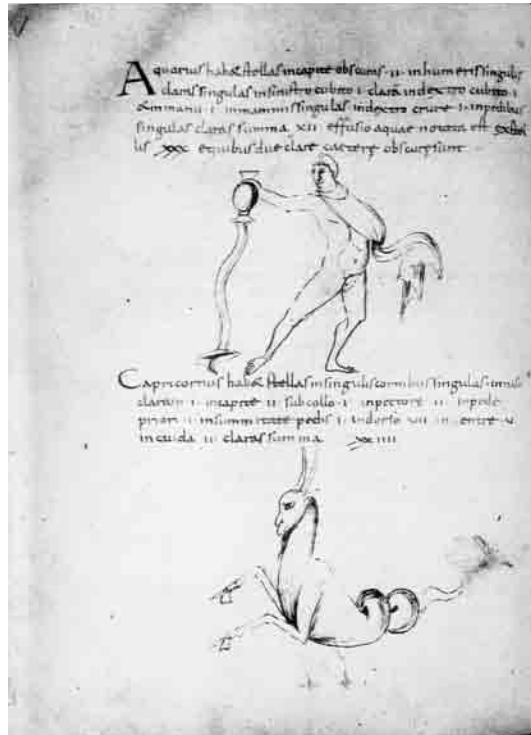 Aquarius hab& stellas incapite obscuras · II · inhumeris singulis
claras singulas insinistro cubito · I · clarā indextro cubito · I ·
& inmanu · I · inmammis singulas indextro crure · I · inpedibus
singulas claras summa XII effusio aquae notata est exstel
lis XXX equibus due clare caetere obscure sunt
Capricornus hab& stellas insingulis cornibus singulas
claram · I · incapite II · subcollo · I · inpectore II · inpede
priori II · insummitate pedis · I · indorso VII inventre V
incauda II · claras summa XXIIII